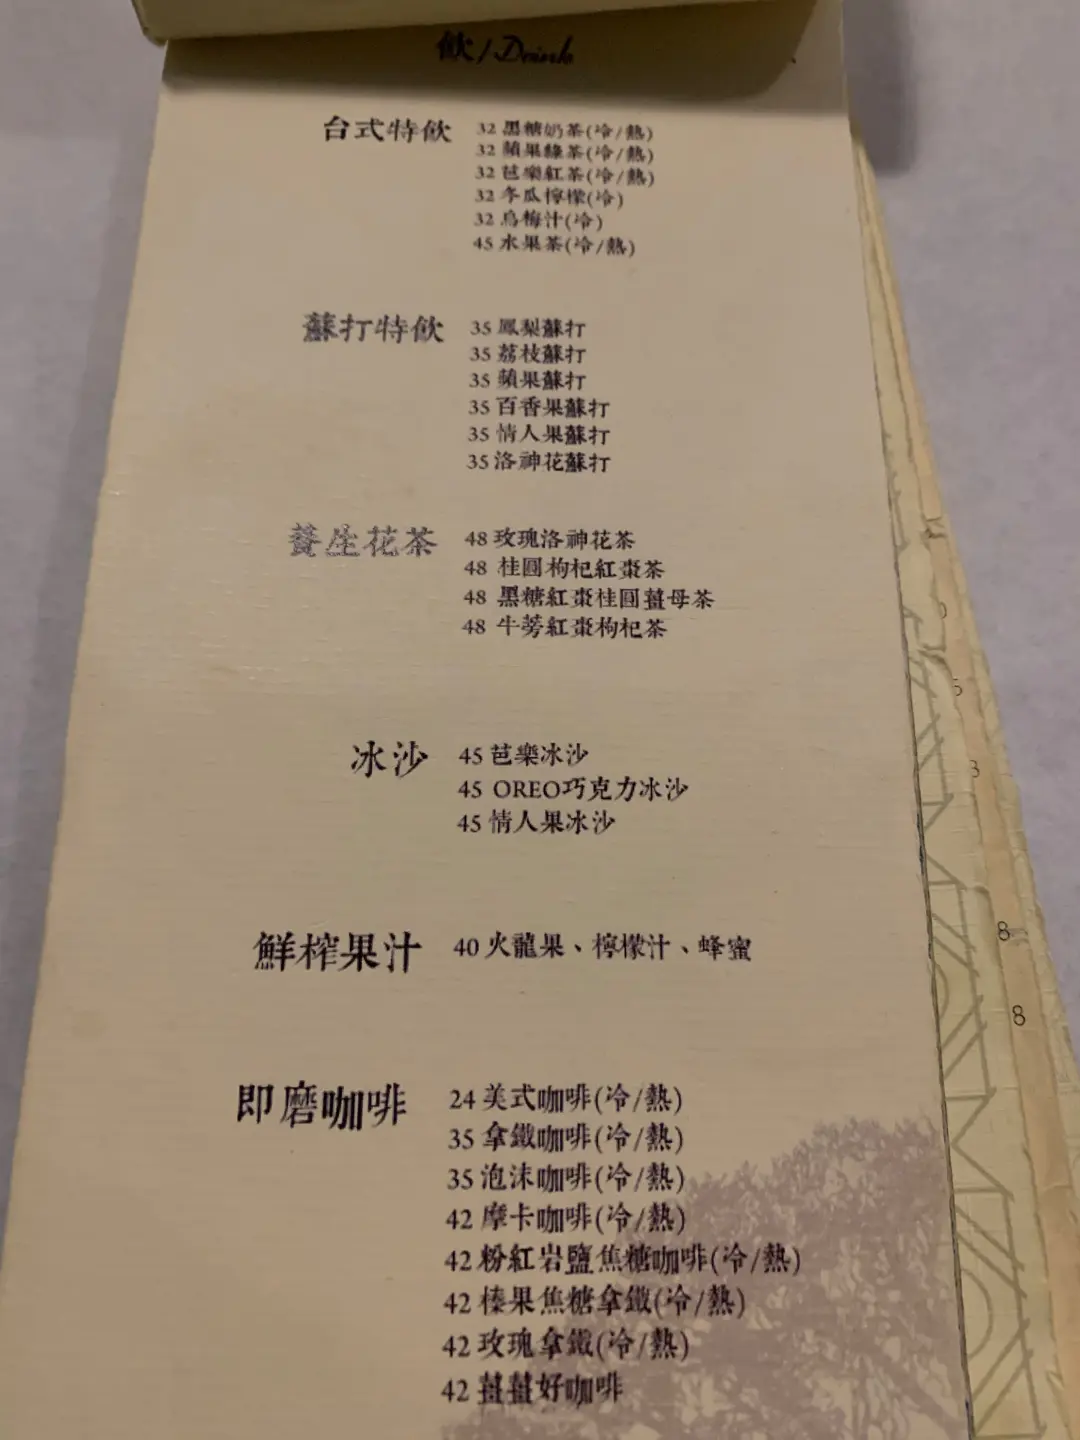 飲/Drinks
台式特飲
32 黑糖奶茶(冷/熱)
32 蘋果綠茶(冷/熱)
32 芭樂紅茶(冷/熱)
32 冬瓜檸檬(冷)
32 烏梅汁(冷)
45 水果茶(冷/熱)
蘇打特飲
35 鳳梨蘇打
35 荔枝蘇打
35 蘋果蘇打
35 百香果蘇打
35 情人果蘇打
35 洛神花蘇打
養生花茶
48 玫瑰洛神花茶
48 桂圓枸杞紅棗茶
48 黑糖紅棗桂圓薑母茶
48 牛蒡紅棗枸杞茶
冰沙
45 芭樂冰沙
45 OREO巧克力冰沙
45 情人果冰沙
鮮榨果汁
40 火龍果、檸檬汁、蜂蜜
即磨咖啡
24 美式咖啡(冷/熱)
35 拿鐵咖啡(冷/熱)
35 泡沫咖啡(冷/熱)
42 摩卡咖啡(冷/熱)
42 粉紅岩鹽焦糖咖啡(冷/熱)
42 榛果焦糖拿鐵(冷/熱)
42 玫瑰拿鐵(冷/熱)
42 薑薑好咖啡
3
8
8